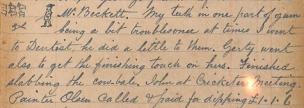 Mr Beckett. My teeth in one part of gum
being a bit troublesome at times I went
to Dentist, he did a little to them. Gerty went
also to get the finishing touch on hers. Finished
slabbing the cow-bale. John at Cricketer Meeting
Painter Olsen Called & paid for dipping £1-1-6